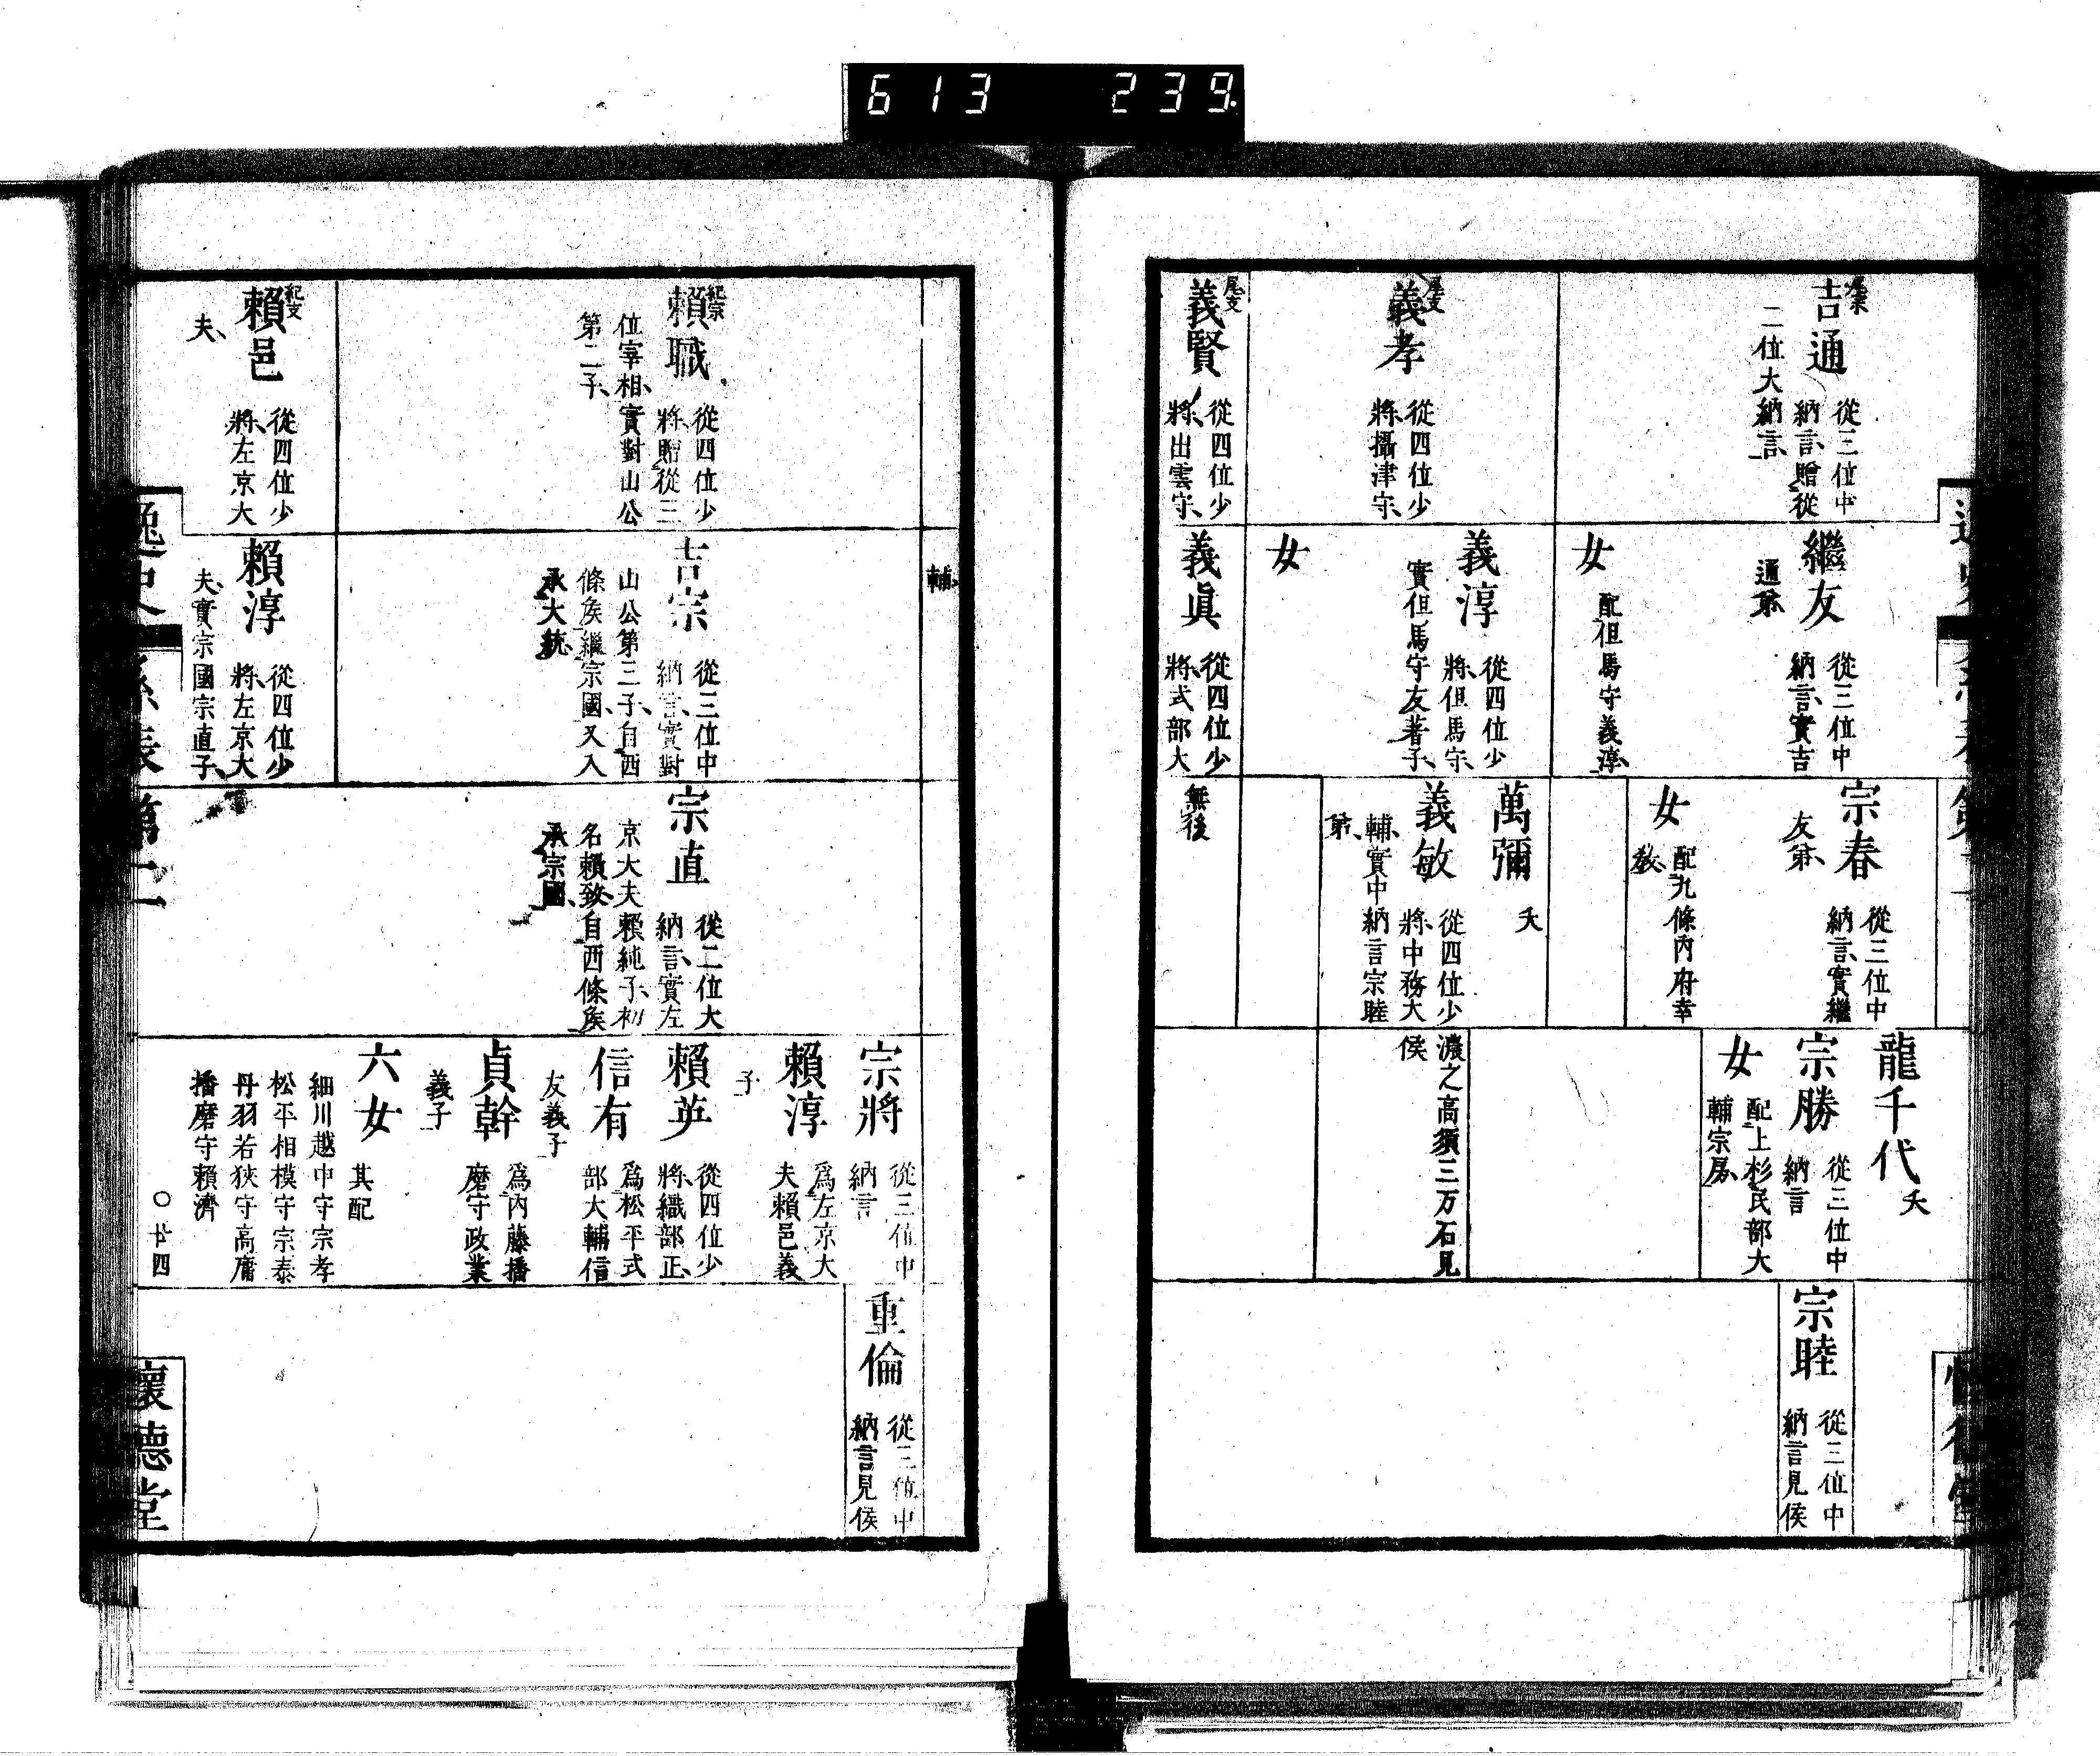 613 239.
尾宗
吉通
從三位中
納言、贈從
二位大納言、
尾支
義孝
從四位少
將、攝津守、
尾支
義賢
從四位少
將、出雲守、
繼友
從三位中
納言、實吉
通弟、
女
配但馬守義淳、
義淳
從四位少
將、但馬守、
實但馬守友著子、
女
義眞
從四位少
將、式部大
宗春
從三位中
納言、實繼
友弟、
女
配九條內府幸
教
萬彌
夭
義敏
從四位少
將、中務大
輔、實中納言宗睦
弟、
無後
龍千代
夭
宗勝
從三位中
納言
女
配上杉民部大
輔宗房、
濃之高須三万石見
侯
宗睦
從三位中
納言見侯
紀宗
賴職
從四位少
將、贈從三
位宰相、實對山公
第二子、
紀支
賴邑
從四位少
將、左京大
夫、
輔、
吉宗
從三位中
納言、實對
山公第三子、自西
條矦繼宗國、又入
承大統、
賴淳
從四位少
將、左京大
夫、實宗國宗直子、
宗直
從二位大
納言、實左
京大夫賴純子、初
名賴致、自西條矦
承宗國、
宗將
從三位中
納言
賴淳
爲左京大
夫賴邑義
子
賴英
從四位少
將、織部正、
信有
爲松平式
部大輔信
友義子
貞幹
爲內藤播
磨守政業
義子
六女
其配
細川越中守宗孝
松平相模守宗泰
丹羽若狹守高庸
播磨守賴濟
重倫
從三位中
納言見侯
逸史
系表
第二
〇廿四
懷德堂